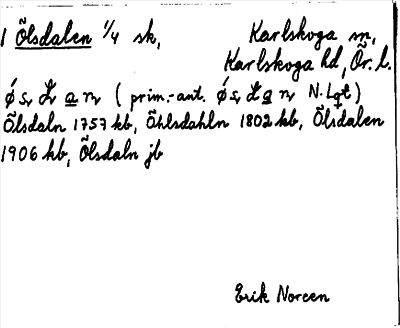 1 Ölsdalen 1/4 sk, Karlskoga sn,
Karlskoga hd, Ör. l.
(prim.-ant. N. Lgt)
Ölsdaln 1757 kb, Öhlsdahln 1802 kb, Ölsdalen
1906 kb, Ölsdaln jb
Erik Noreen